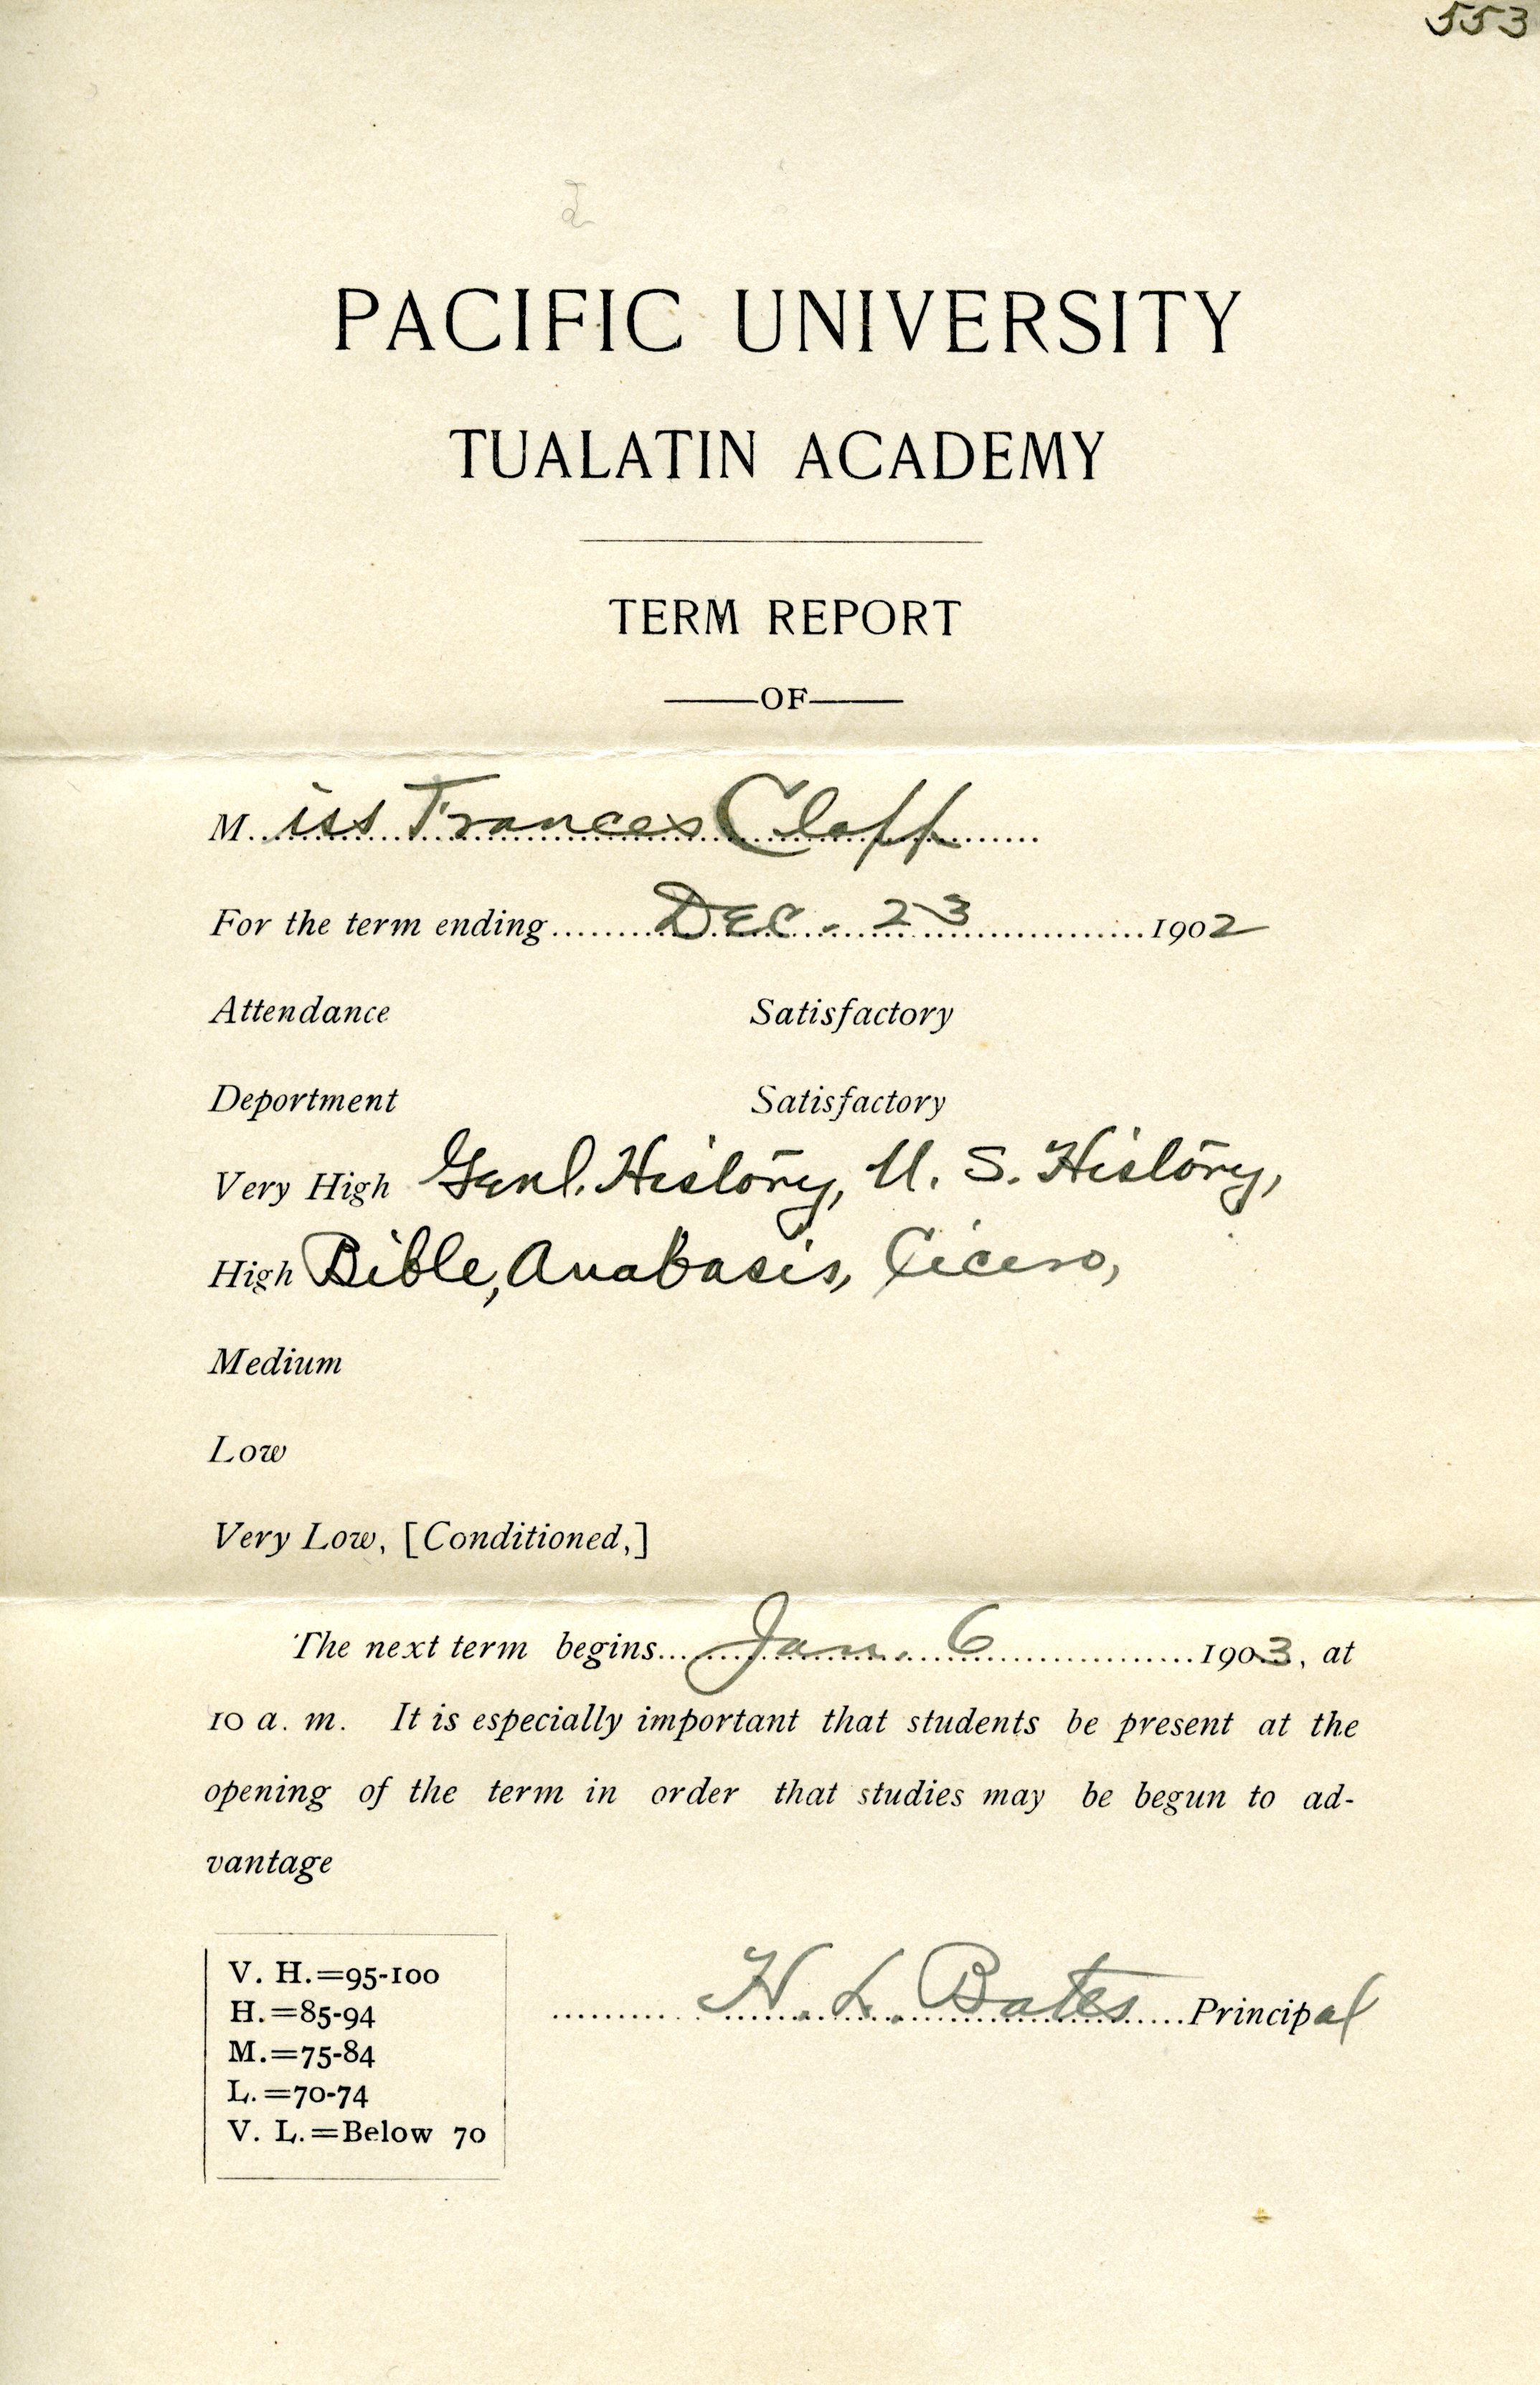 553
PACIFIC UNIVERSITY
TUALATIN ACADEMY
TERM REPORT
OF
Miss Frances Clapp
For the term ending Dec. 23 1902
Attendance Satisfactory
Deportment Satisfactory
Very High Genl. History, U. S. History,
High Bible, Anabasis, Cicero,
Medium
Low
Very Low, [Conditioned,]
The next term begins Jan. 6 1903, at
10 a. m. It is especially important that students be present at the
opening of the term in order that studies may be begun to ad-
vantage
V. H.=95-100
H.=85-94
M.=75-84
L.=70-74
V. L.=Below 70
H. L. Bates Principal